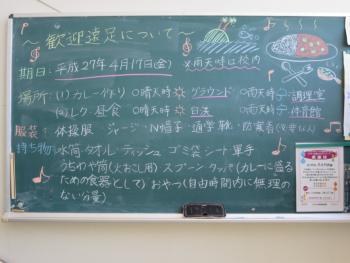 ～歓迎遠足について～
期日：平成27年4月17日(金) ※雨天時は校内
場所：(1)カレー作り ○晴天時 グラウンド ○雨天時 調理室
(2)レク・昼食 ○晴天時 白浜 ○雨天時 体育館
服装：体操服 ジャージ N帽子 通学靴
持ち物：水筒 タオル ティッシュ ゴミ袋 シート 軍手
うちわや筒(火おこし用) スプーン タッパ(カレーに盛る
ための食器として) おやつ(自由時間内に無理の
ない分量)